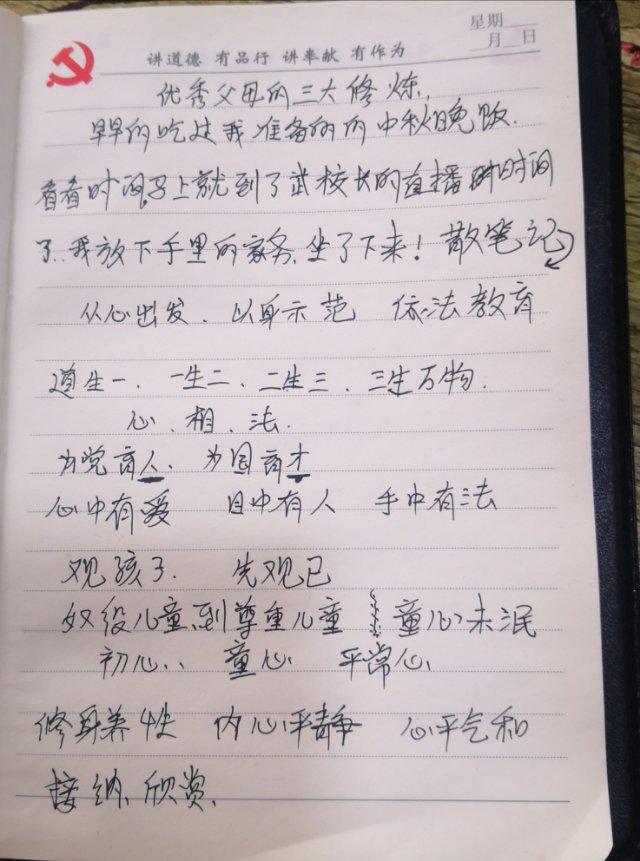 星期
月 日
讲道德 有品行 讲奉献 有作为
优秀父母的三大修炼.
早早的吃过我准备的的中秋晚饭.
看看时间马上就到了武校长的直播时间
了..我放下手里的家务.坐了下来！散笔记
从心出发.以身示范 依法教育
道生一、一生二、二生三、三生万物.
心、相、法.
为党育人、为国育才
心中有爱 目中有人 手中有法
观孩子. 先观己
奴役儿童到尊重儿童 童心未泯
初心、、童心、平常心、
修身养性 内心平静 心平气和
接纳、欣赏、